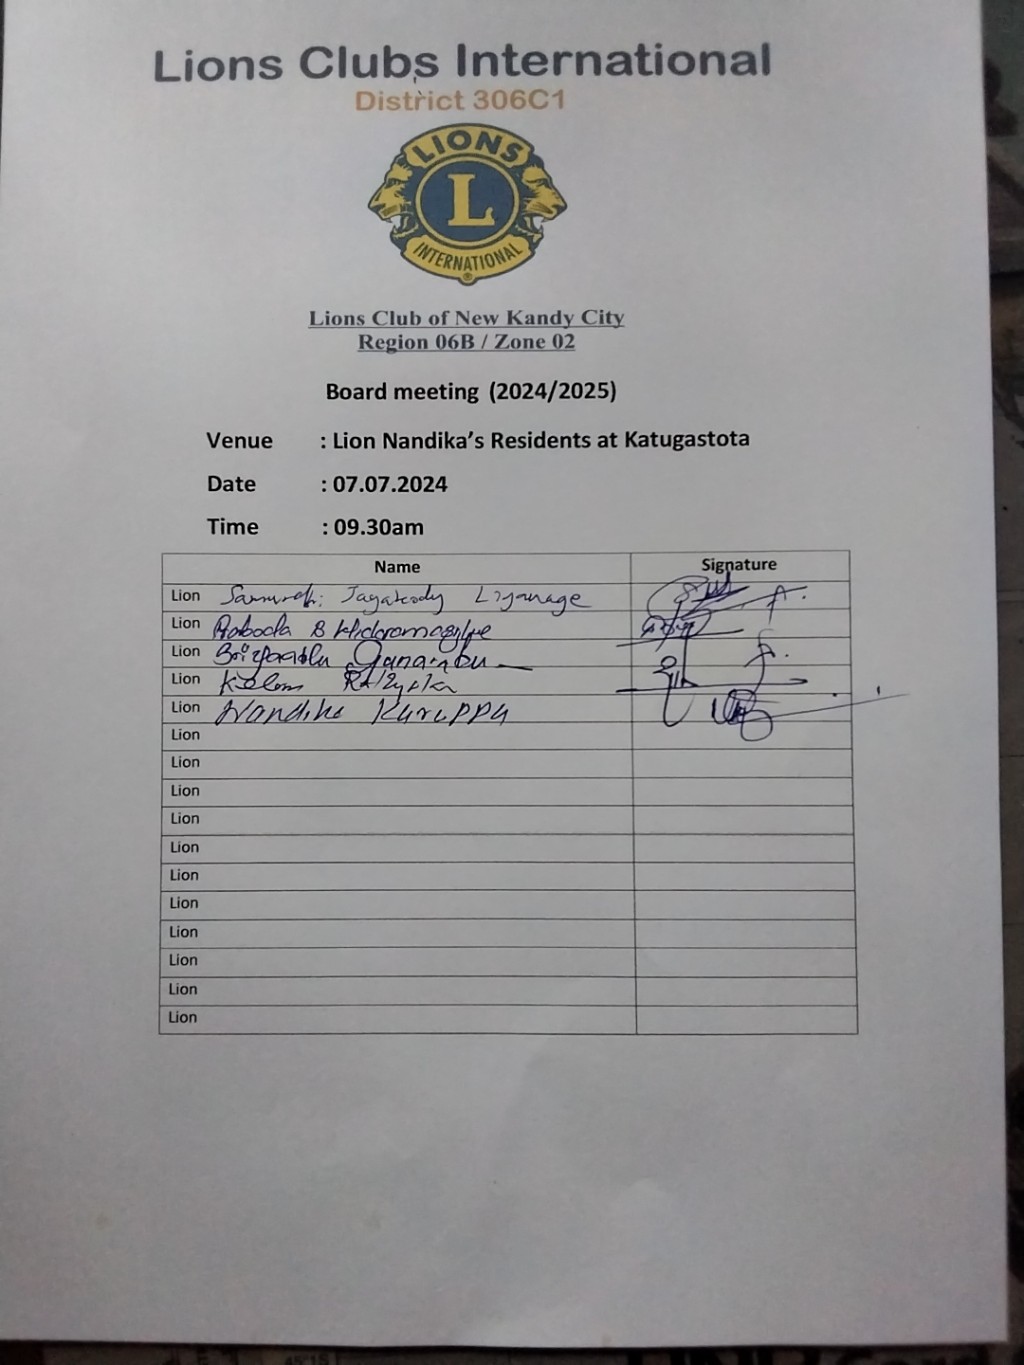 Lions Clubs International
District 306C1
LIONS
L
INTERNATIONAL
®
Lions Club of New Kandy City
Region 06B / Zone 02
Board meeting (2024/2025)
Venue : Lion Nandika's Residents at Katugastota
Date : 07.07.2024
Time : 09.30am
Name Signature
Lion Jayakody Liyanage
Lion
Lion
Lion
Lion Nandika Kuruppu
Lion
Lion
Lion
Lion
Lion
Lion
Lion
Lion
Lion
Lion
Lion